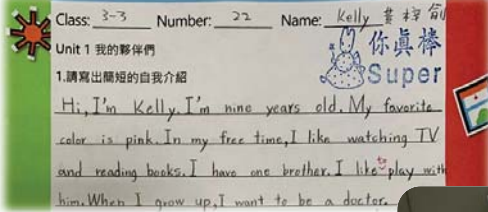 Class: 3-3 Number: 22 Name: Kelly 黃梓俞
Unit 1 我的夥伴們
你真棒
Super
1.請寫出簡短的自我介紹
Hi, I'm Kelly. I'm nine years old. My favorite
color is pink. In my free time, I like watching TV
and reading books. I have one brother. I like to play with
him. When I grow up, I want to be a doctor.